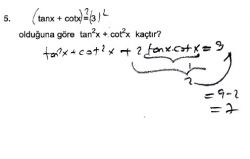 5. (tanx + cotx)²=(3)²
olduğuna göre tan²x + cot²x kaçtır?
tan²x + cot²x + 2 tanx.cotx = 9
1
2
= 9-2
= 7